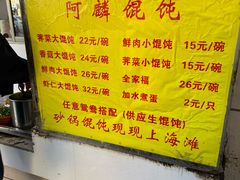 阿麟馄饨
荠菜大馄饨 22元/碗 鲜肉小馄饨 15元/碗
香菇大馄饨 24元/碗 荠菜小馄饨 15元/碗
鲜肉大馄饨 26元/碗 全家福 26元/碗
虾仁大馄饨 32元/碗 加水煮蛋 2元/只
任意鸳鸯搭配(供应生馄饨)
砂锅馄饨现现上海滩